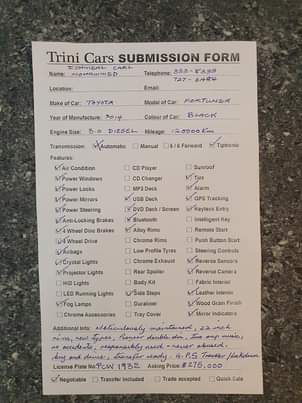 Trini Cars SUBMISSION FORM
Name: MOHAMMED Telephone:
727-
Location: Email:
Make of Car: TOYOTA Model of Car: FORTUNER
Year of Manufacture: 2014 Colour of Car: BLACK
Engine Size: 3.0 DIESEL Mileage: 120000km
Transmission: Automatic Manual 5 / 6 Forward Tiptronic
Features:
Air Condition CD Player Sunroof
Power Windows CD Changer Tint
Power Locks MP3 Deck Alarm
Power Mirrors USB Deck GPS Tracking
Power Steering DVD Deck / Screen Keyless Entry
Anti-Locking Brakes Bluetooth Intelligent Key
4 Wheel Disc Brakes Alloy Rims Remote Start
4 Wheel Drive Chrome Rims Push Button Start
Airbags Low Profile Tyres Steering Controls
Crystal Lights Chrome Exhaust Reverse Sensors
Projector Lights Rear Spoiler Reverse Camera
HID Lights Body Kit Fabric Interior
LED Running Lights Side Steps Leather Interior
Fog Lamps Duraliner Wood Grain Finish
Chrome Accessories Tray Cover Mirror Indicators
Additional Info: Meticulously maintained, 22 inch
rims, new tyres, Pioneer double din, top end music,
no accidents, responsibly used - never abused,
buy and drive, transfer ready. G.P.S Tracker/
License Plate No: PCW 1932 Asking Price: $275,000
Negotiable Transfer Included Trade accepted Quick Sale